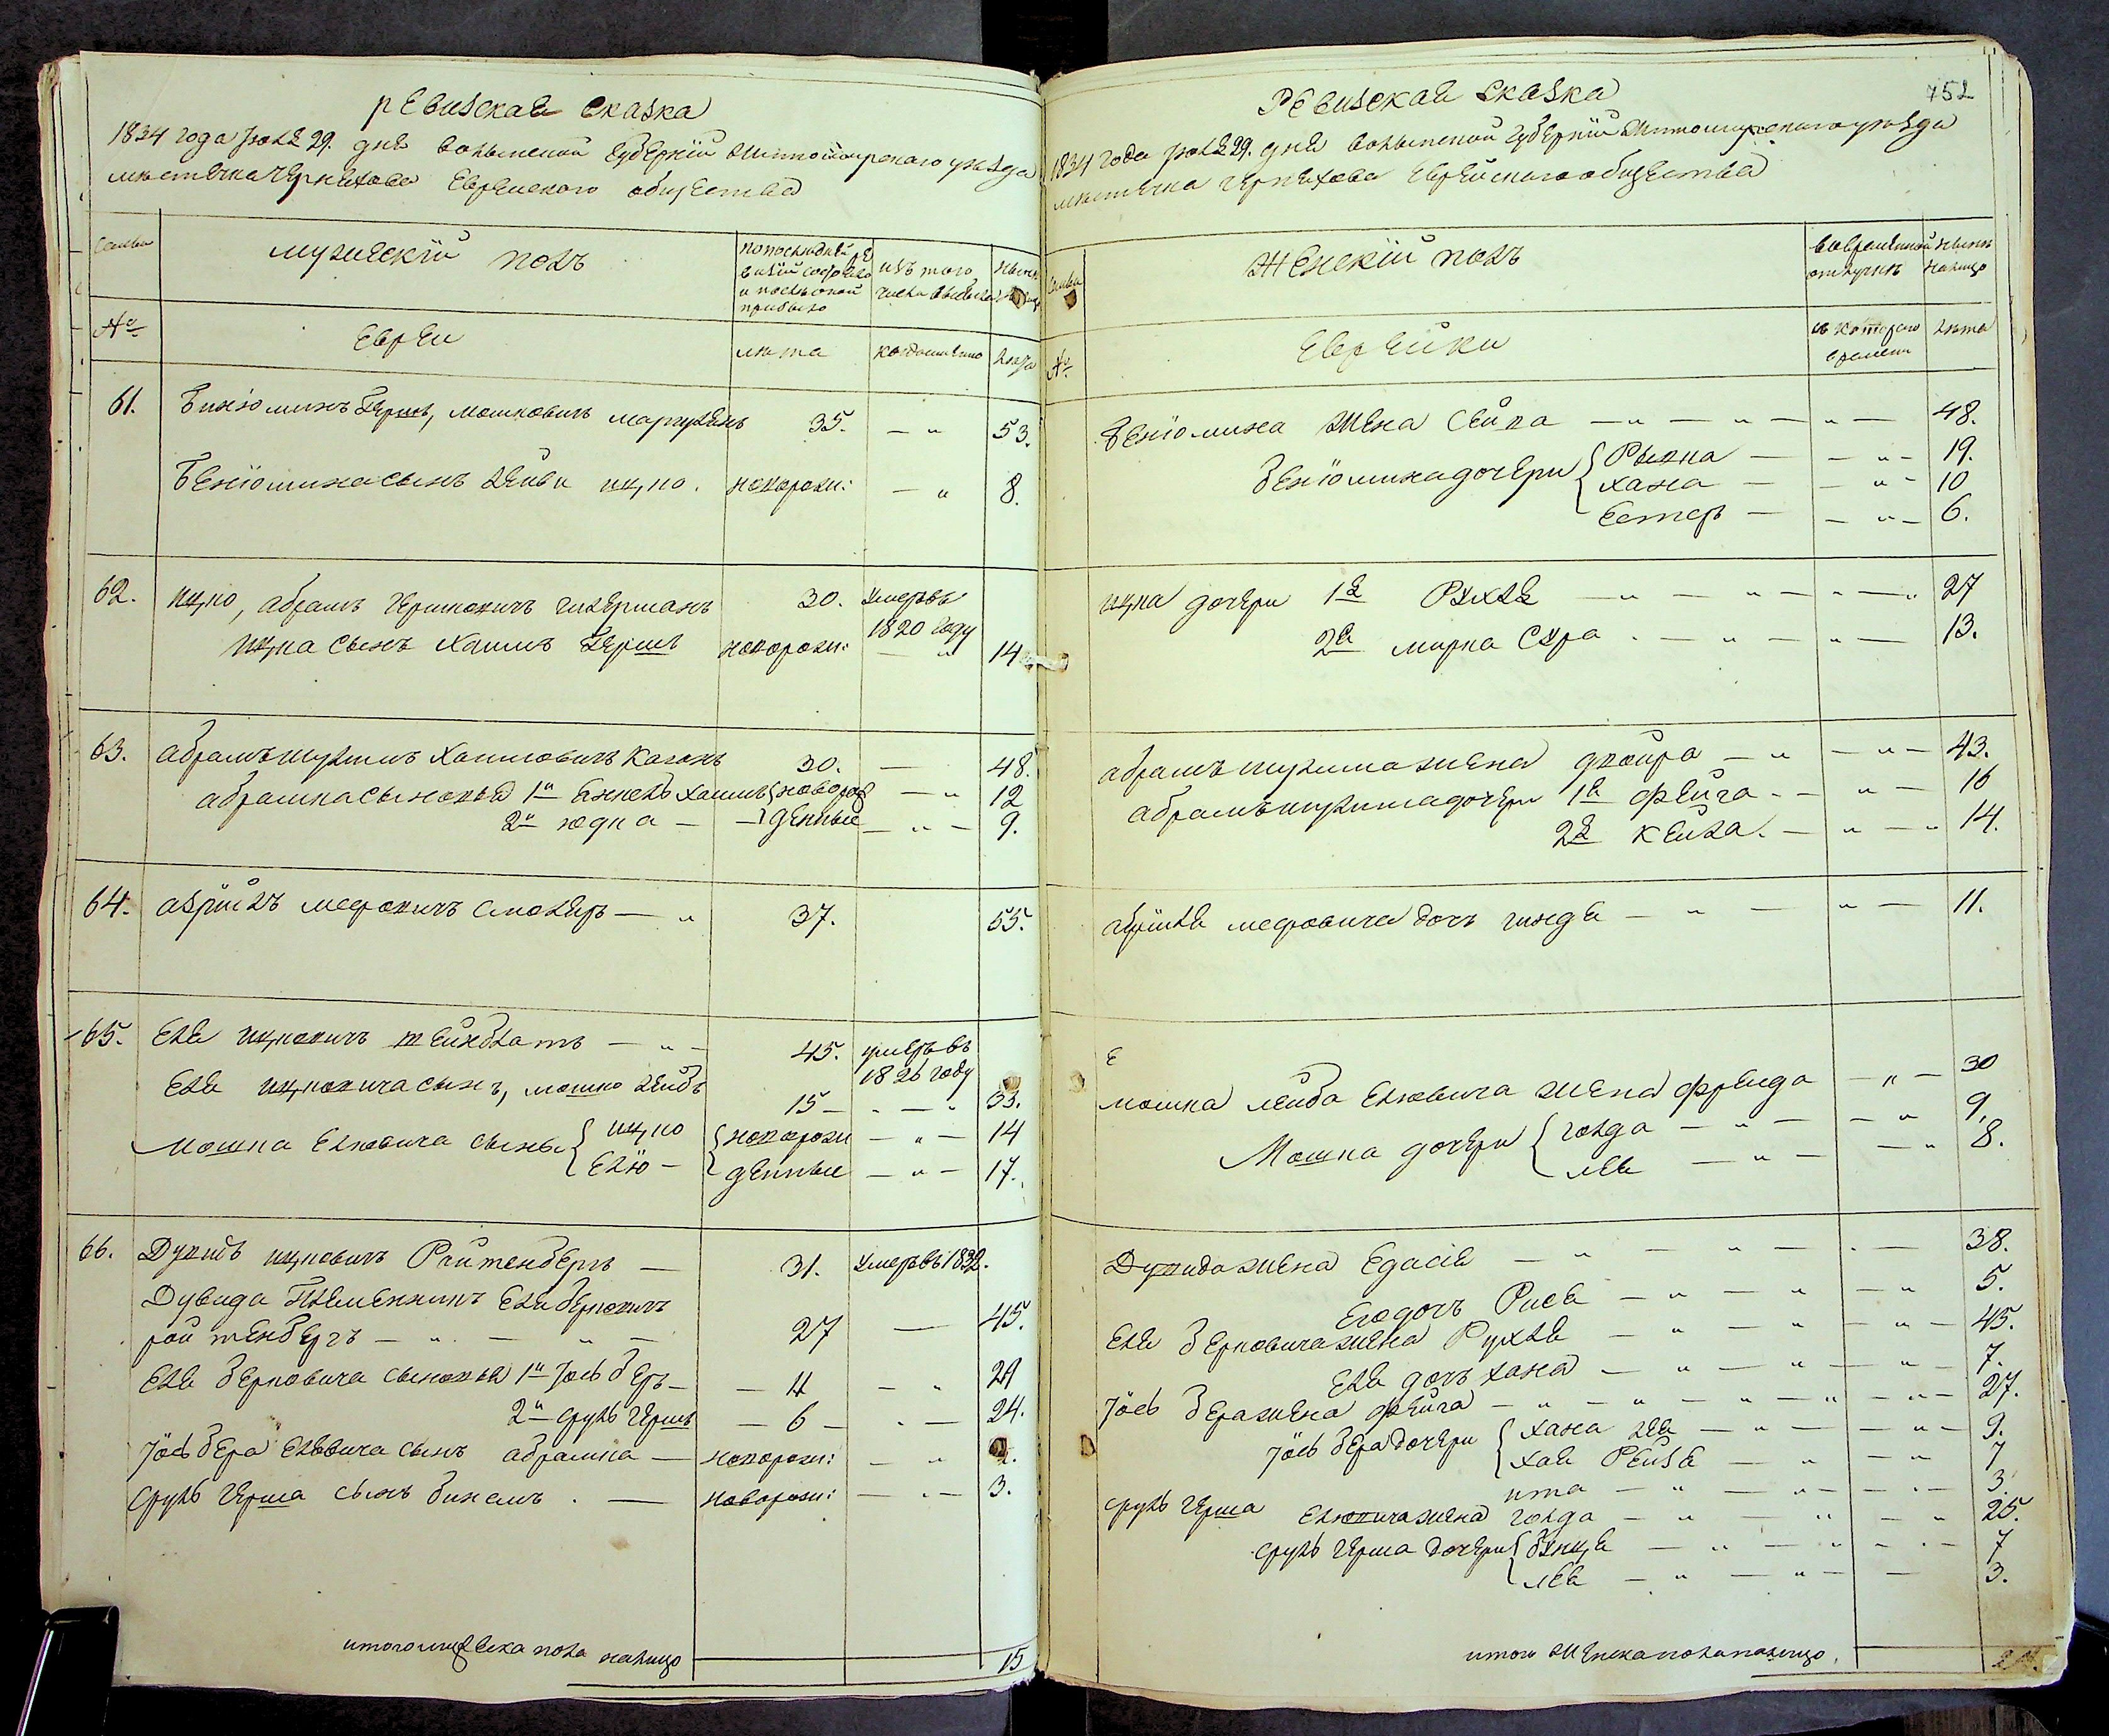 ревизская сказка
1834 года июля 29. дня волынской губернии житомирскаго уезда
местечка черняхова еврейского общества
семьи
мужеский полъ
по последней ревизии состояло и после оной прибыло
изъ того числа выбыло
ныне налицо
№
евреи
лета
когда именно
лета
61.
Бинюминъ Гершъ, мошковичъ 35. — " 53.
Бенюмина сынъ Лейба ицко. новорож: — " 8.
62. ицко, абрамъ гершковичъ 30. умеръ въ 1820 году
ицка сынъ Хаимъ Гершъ новорож: — " 14
63. абрамъ шулимъ Хаимовичъ Каганъ 30. — 48.
абрамка сыновья 1й Хаимъ новорож — " 12
2й юдка — денные — " — 9.
64. азриилъ меровичъ столеръ — " 37. 55.
65. Еля ицковичъ тейнблатъ — " — 45. умеръ въ 1826 году
Еля ицковича сынъ, мошко лейбъ 15 — " — " 33.
Мошка Елювича сыны ицко новорож — " — 14
Елю — денные — " — 17.
66. Дувидъ ицковичъ Ройтенбергъ — 31. умеръ въ 1832.
Дувида Племянникъ Еля берковичъ
ройтенбергъ — " — " — 27 — 45.
Еля берковича сыновья 1й Иось беръ — — 11 — " 29
2й сруль гершъ — 6 — " — 24.
Иось бера Елевича сынъ абрамка — новорож: — "
сруль герша сынъ бинемъ . — новорож: — " — 3.
итого мужеска пола налицо 15
752
Ревизская сказка
1834 года июля 29. дня волынской губернии житомирскаго уезда
местечка черняхова еврейскаго общества
семьи
женский полъ
во временной отлучке
ныне налицо
№
еврейки
съ котораго времени
лета
Бенюмина жена Сейка — " — " — " — 48.
Бенюмина дочери Рыкла — — " — 19.
хана — — " — 10
Естеръ — — " — 6.
ицка дочери 1я Рухля — " — " — " 27
2я мирка Сура . — " — " — 13.
абрамъ шулима жена двойра — " — " — 43.
абрамъ шулима дочери 1я фейга — — " — 16
2я кейла. — " — " 14.
азриля меровича дочъ гинда — " — " — 11.
Е
мошка лейба Елювича жена фрейда — " — 30
Мошка дочери голда — " — — " 9.
лея — " — — " 8.
Дувида жена Едасия — " — " — . — 38.
Его дочъ Рися — " — " — " 5.
Еля берковича жена Рухля — " — " — " — 45.
Еля дочъ хана — " — " — " — 7.
Иось бера жена фейга — " — " — " — " — 27.
Иось бера дочери хана лея — " — — " — 9.
хая Рейзя — " — " 7
ита — " — " — " — 3.
сруль герша Елювича жена голда — " — " — " 25.
сруль герша дочери — " — " — " — 7
лея — " — " — — 3.
итого женска пола налицо.